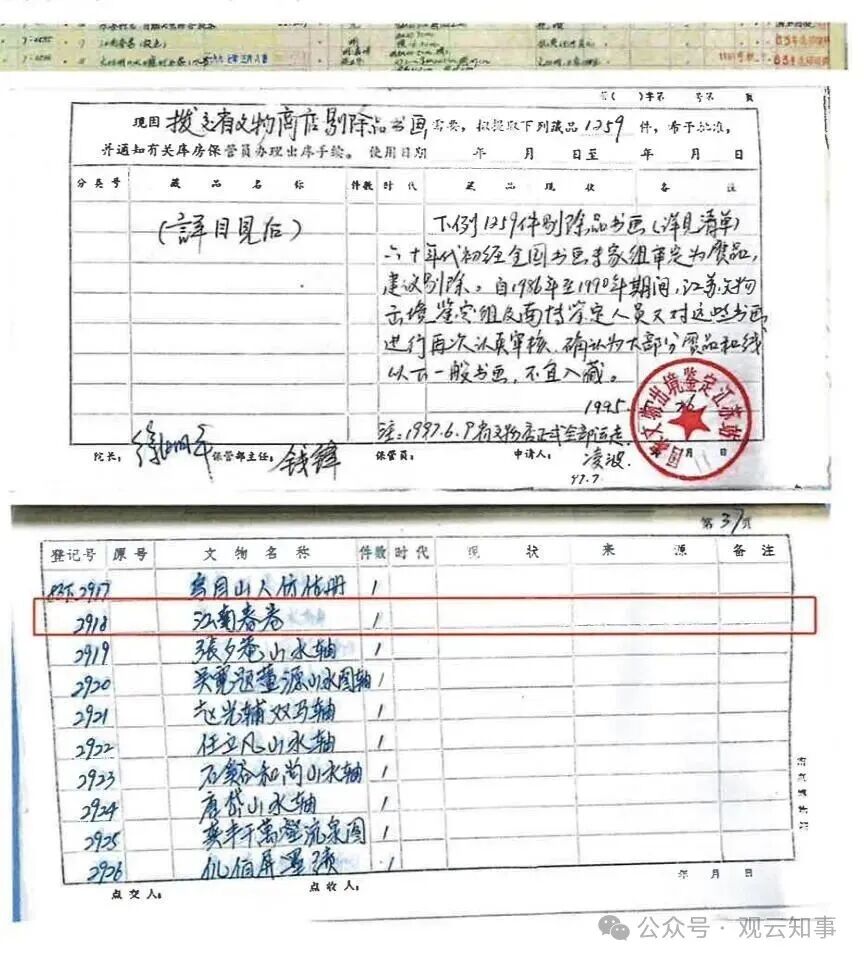 江南春卷
字( )字第 号第 页
现因 拨交省文物商店剔除品书画 需要,拟提取下列藏品 1259 件,希予批准,
并通知有关库房保管员办理出库手续。 使用日期 年 月 日至 年 月 日
分类号 藏品名称 件数 时代 藏品现状 备注
(详目见后)
下列1259件剔除品书画(详见清单)
六十年代初经全国书画专家组审定为赝品,
建议剔除。自1986年至1990年期间,江苏文物
出境鉴定组及南博鉴定人员又对这些书画
进行再次认真审核,确认为大部分赝品和线
以下一般书画,不宜入藏。
1995. 26
注:1997.6.9省文物店正式全部运走
院长: 徐湖平 保管部主任: 钱锋 保管员: 申请人: 凌波
97.7.
年 月 日
国家文物出境鉴定江苏站
第37页
登记号 原号 文物名称 件数 时代 现状 来源 备注
2917 山人仿倍册 1
2918 江南春卷 1
2919 張夕菴山水轴 1
2920 吴寬题董源山水图轴 1
2921 赵光辅双马轴 1
2922 任立凡山水轴 1
2923 石谿和尚山水轴 1
2924 唐岱山水轴 1
2925 奚丰千萬壑流泉图 1
2926 仇伯屏墨蹟 1
年 月 日
点交人: 点收人:
公众号 · 观云知事